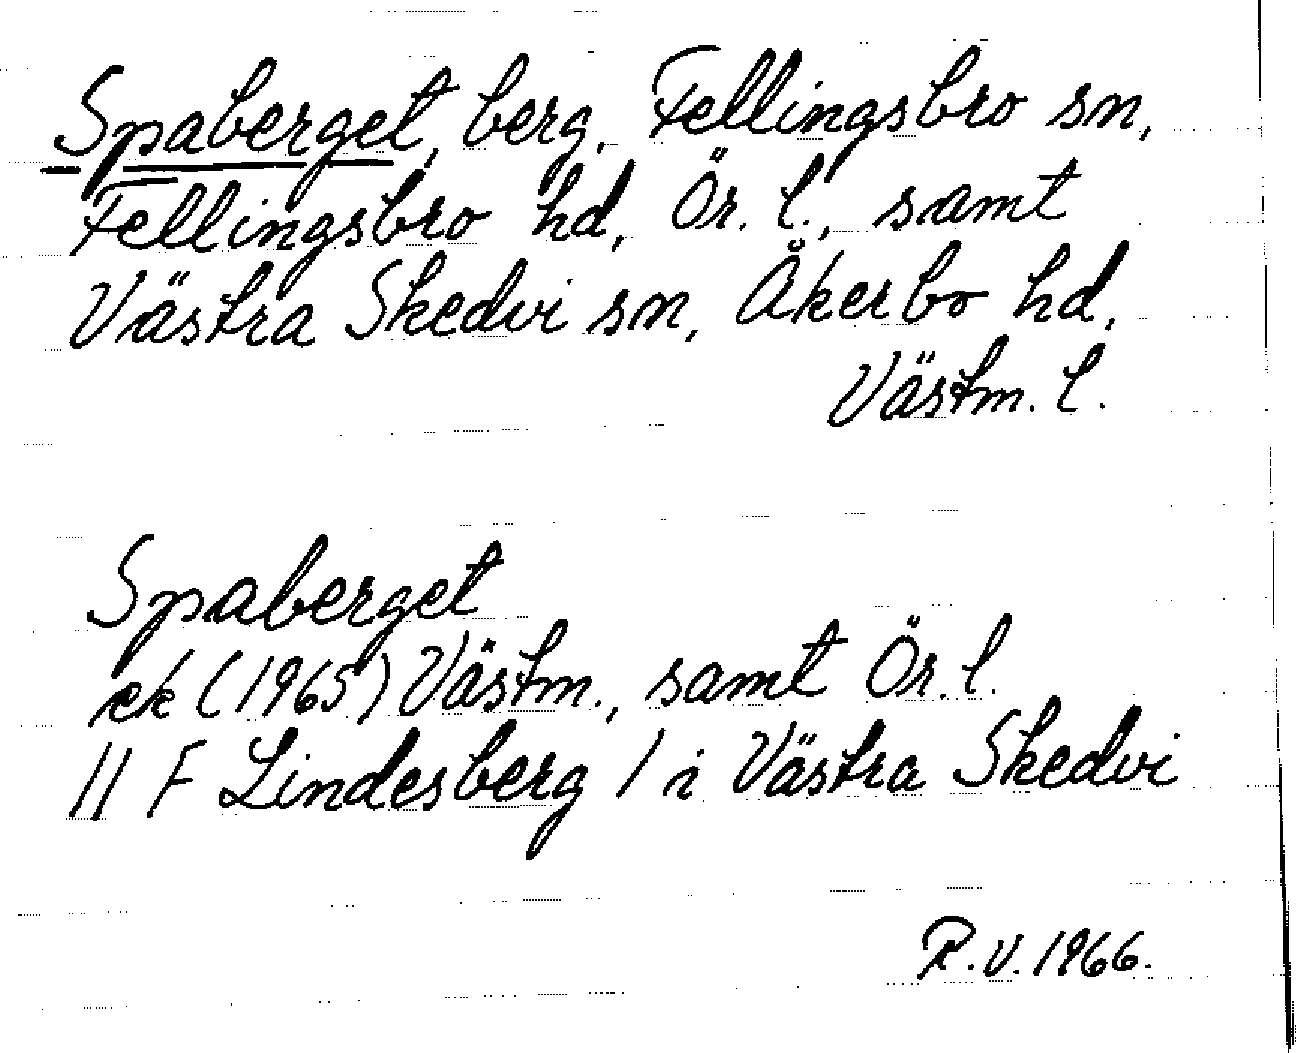 Spaberget, berg, Fellingsbro sn,
Fellingsbro hd, Ör. l., samt
Västra Skedvi sn, Åkerbo hd,
Västm. l.
Spaberget
ek (1965) Västm., samt Ör. l.
11 F Lindesberg / i Västra Skedvi
R.V. 1966.